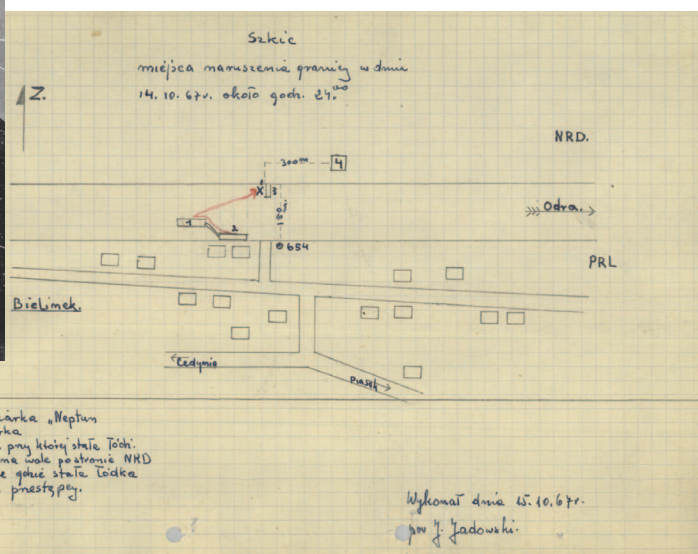 Szkic
miejsca naruszenia granicy w dniu
14.10.67r. około godz. 24.⁰⁰
Z.
NRD.
300 m
4
X
3
180 m
Odra.
1
2
654
PRL
Bielinek.
Cedynia
Piasek
"Neptun
przy której stała łódź.
na wale po stronie NRD
gdzie stała łódka
przestępcy.
Wykonał dnia 15.10.67r.
por J. Jadowski.